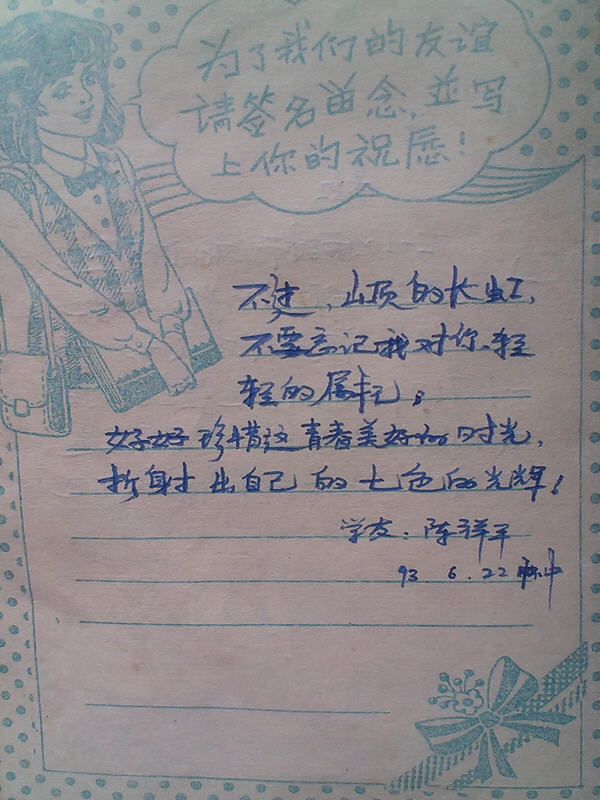 为了我们的友谊
请签名留念,並写
上你的祝愿!
不过,山顶的长虹,
不要忘记我对你轻
轻的属托;
好好珍惜这青春美好的时光,
折射出自己的七色的光辉!
学友:陈祥军
93.6.22